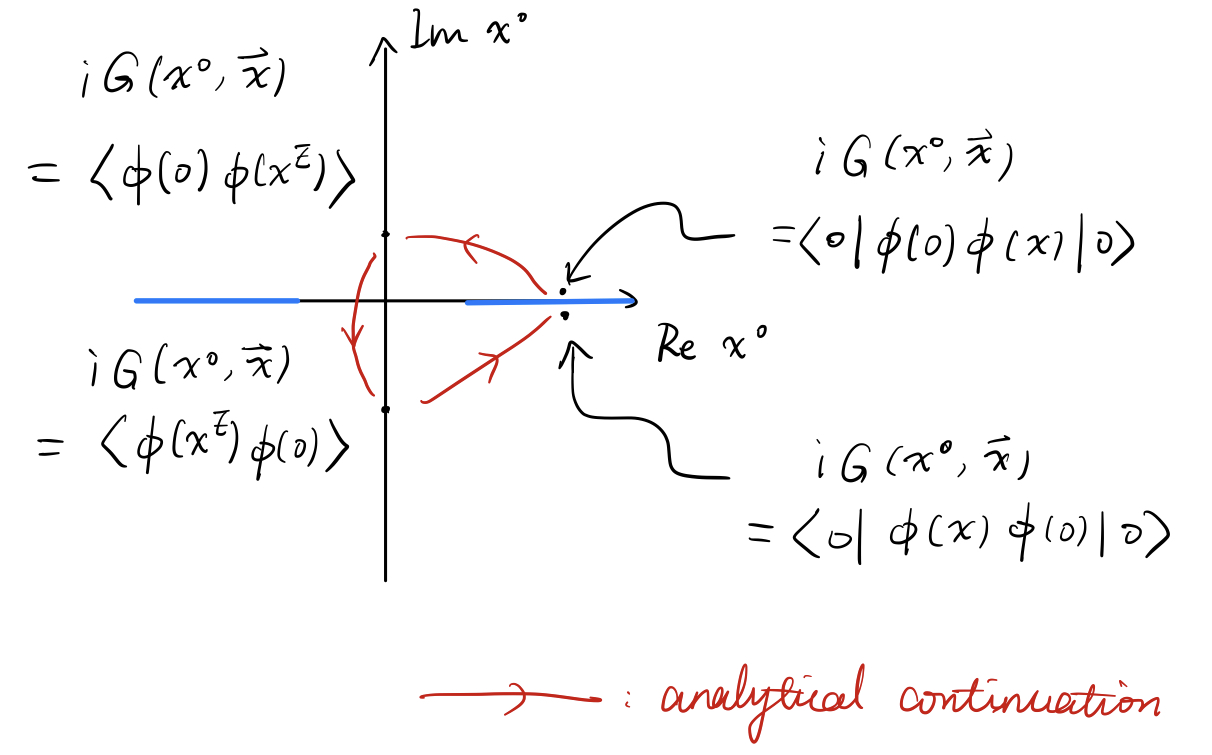 Im x⁰
i G(x⁰, x⃗)
= ⟨ϕ(0) ϕ(xᴱ)⟩
i G(x⁰, x⃗)
= ⟨0| ϕ(0) ϕ(x) |0⟩
Re x⁰
i G(x⁰, x⃗)
= ⟨ϕ(xᴱ) ϕ(0)⟩
i G(x⁰, x⃗)
= ⟨0| ϕ(x) ϕ(0) |0⟩
: analytical continuation